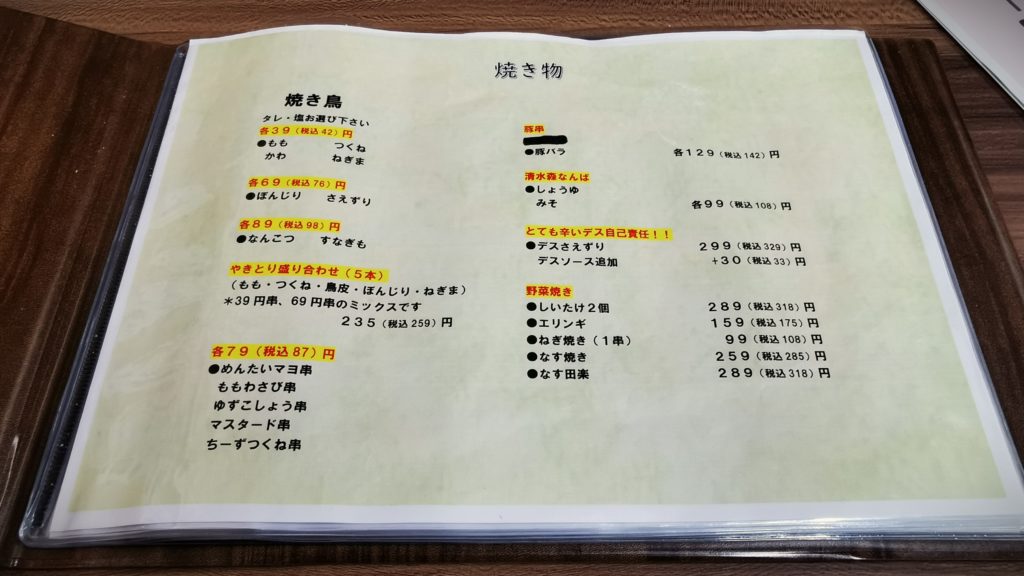 焼き物
焼き鳥
タレ・塩お選び下さい
各39（税込42）円
●もも　つくね
かわ　ねぎま
各69（税込76）円
●ぼんじり　さえずり
各89（税込98）円
●なんこつ　すなぎも
やきとり盛り合わせ（5本）
（もも・つくね・鳥皮・ぼんじり・ねぎま）
＊39円串、69円串のミックスです
235（税込259）円
各79（税込87）円
●めんたいマヨ串
ももわさび串
ゆずこしょう串
マスタード串
ちーずつくね串
豚串
●豚バラ　各129（税込142）円
清水森なんば
●しょうゆ
みそ　各99（税込108）円
とても辛いデス自己責任！！
●デスさえずり　299（税込329）円
デスソース追加　+30（税込33）円
野菜焼き
●しいたけ2個　289（税込318）円
●エリンギ　159（税込175）円
●ねぎ焼き（1串）　99（税込108）円
●なす焼き　259（税込285）円
●なす田楽　289（税込318）円